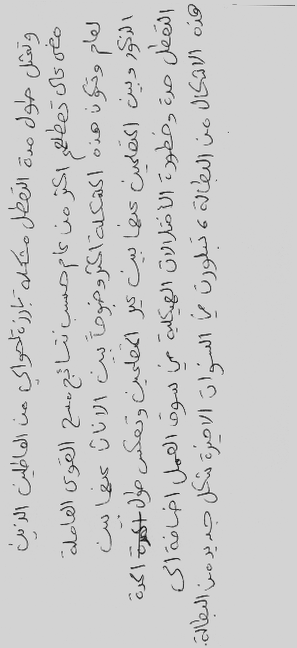 وتمثل طول مدة التعطل مشكلة بارزة لحوالي من العاطلين الذين
مضى على تعطلهم اكثر من عام حسب نتائج مسح القوى العاملة
لعام وتكون هذه المشكلة اكثر وضوحا بين الاناث عنها بين
الذكور وبين المتعلمين عنها بين غير المتعلمين وتعكس طول المدة
التعطل حدة وخطورة الاختلالات الهيكلية في سوق العمل اضافة الى
هذه الاشكال من البطالة، تبلورت في السنوات الاخيرة شكل جديد من البطالة.